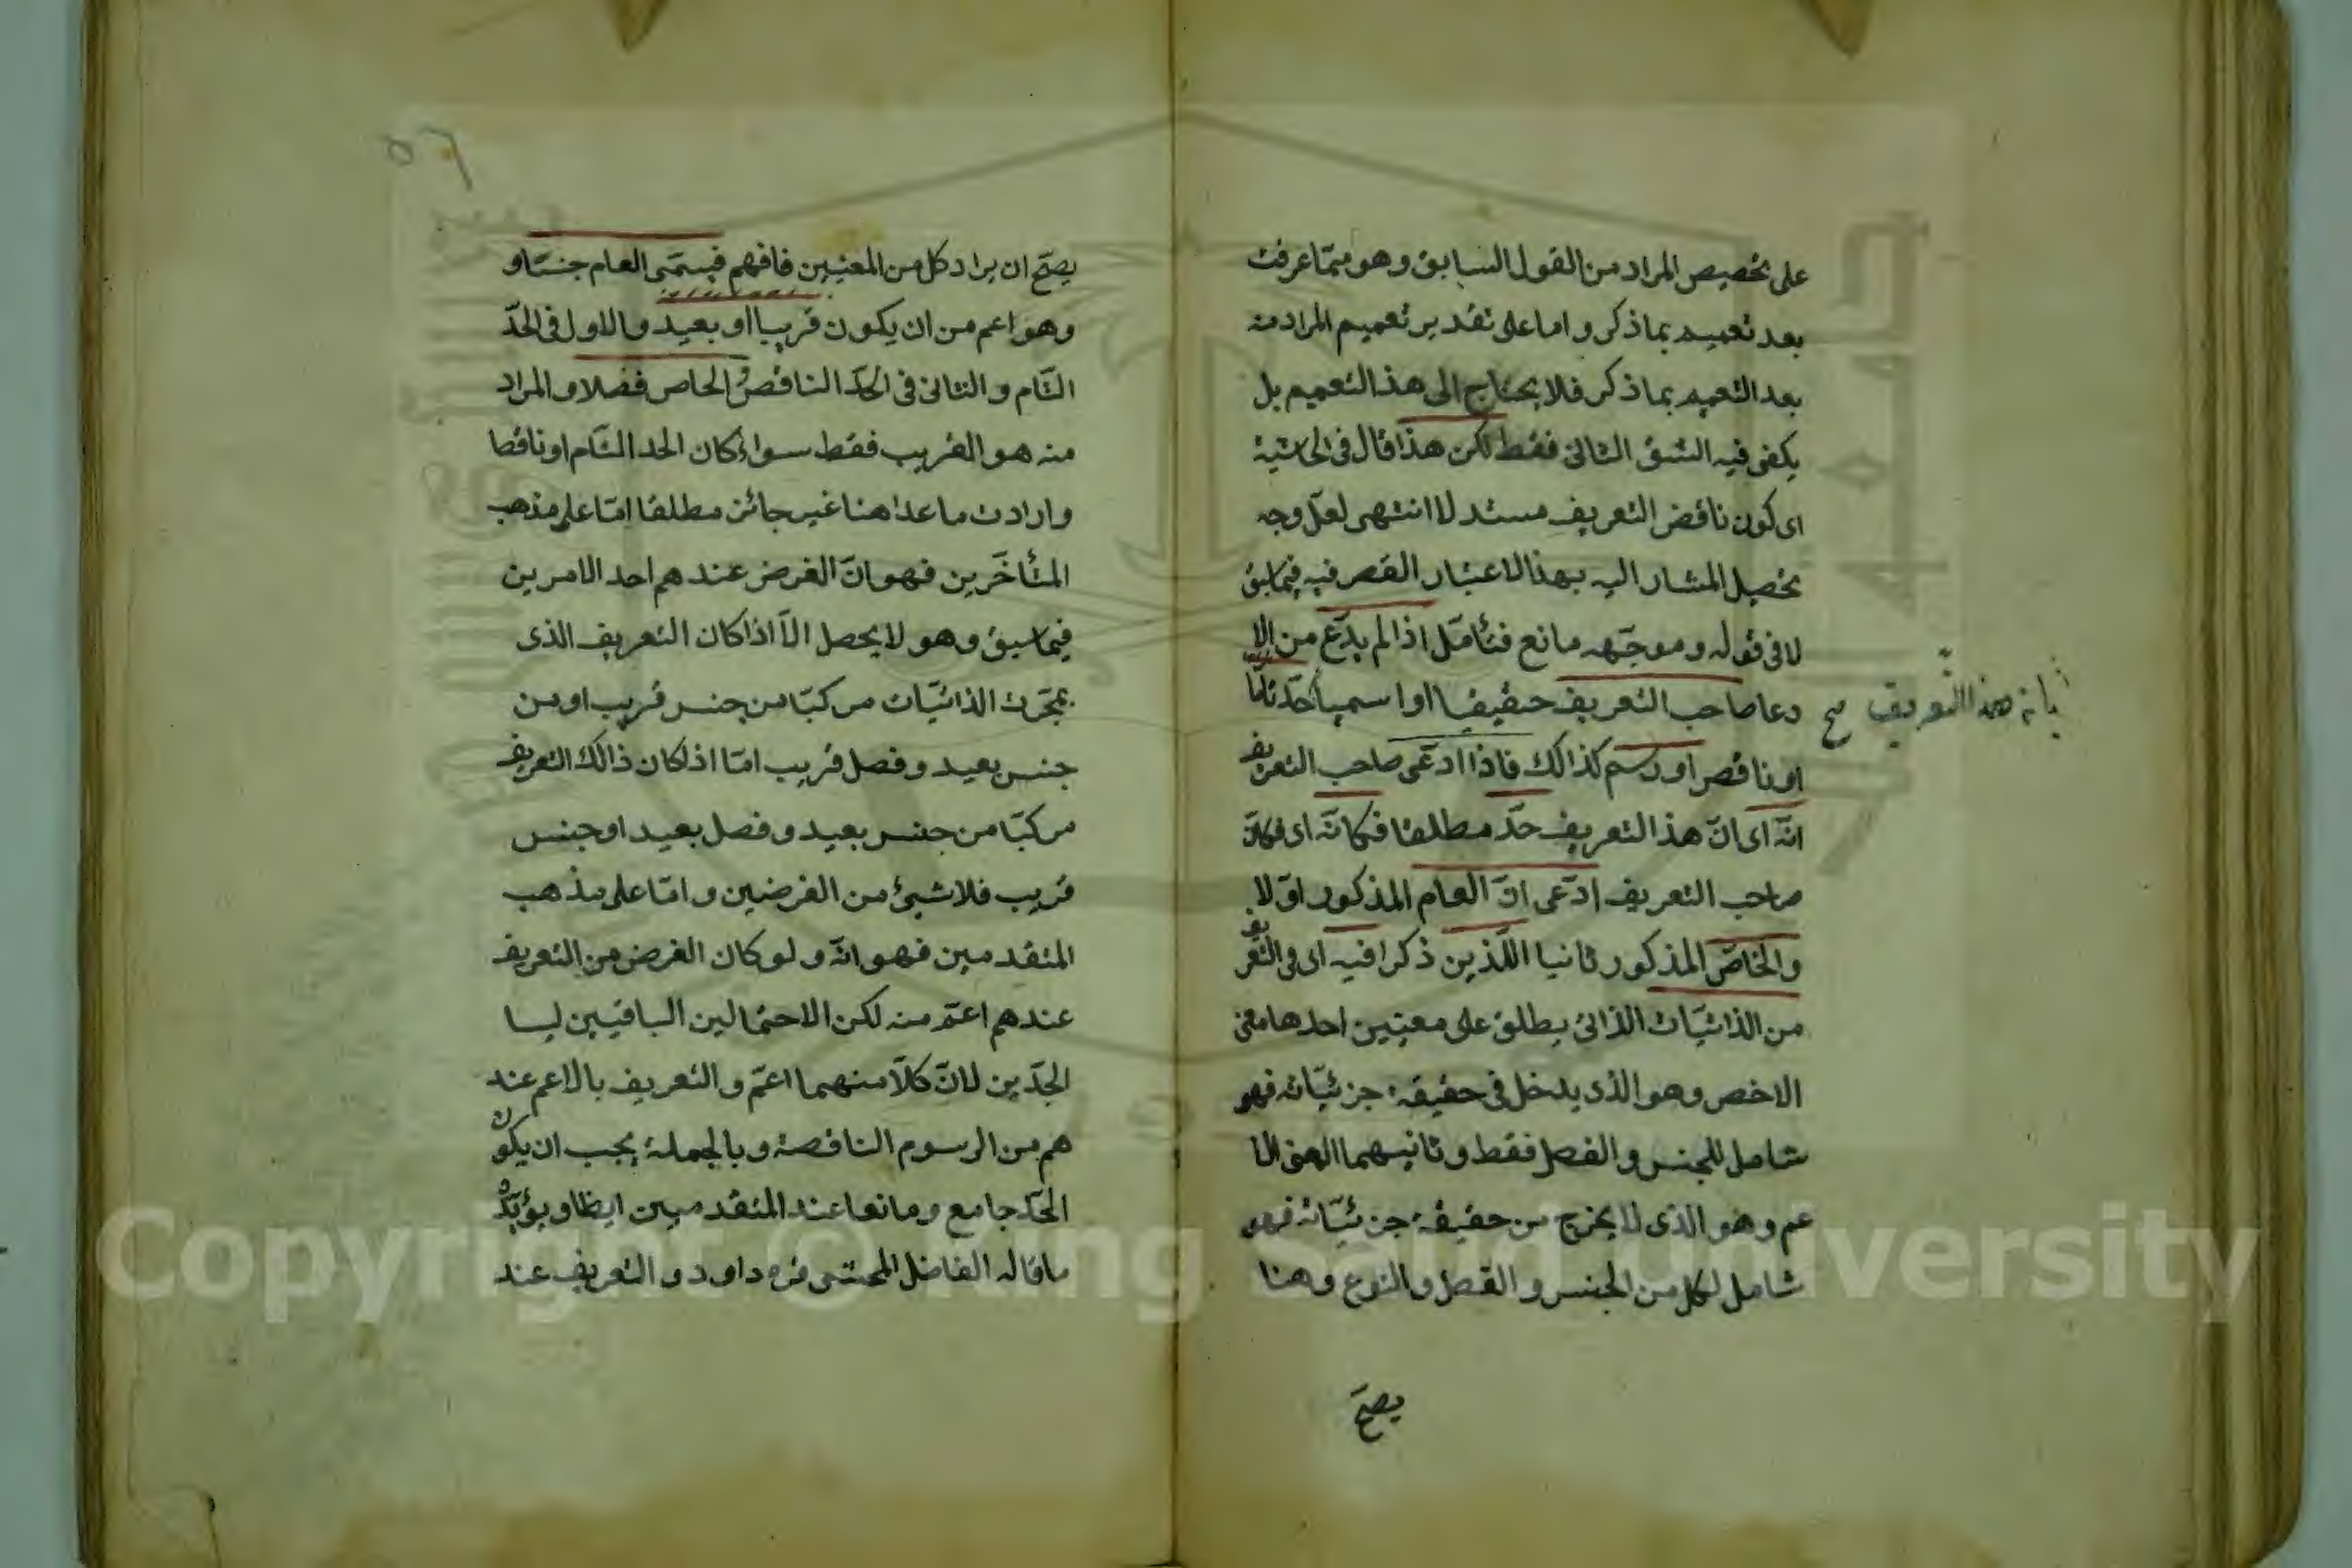 على تخصيص المراد من القول السابق وهو مما عرفت
بعد تعميمه بما ذكر واما على تقدير تعميم المراد منه
بعد التعميم بما ذكر فلا يحتاج الى هذا التعميم بل
يكفى فيه الشق الثانى فقط لكن هذا قال فى الحاشية
اى كون ناقض التعريف مستدلا انتهى لعل وجه
تحصيل المشار اليه بهذا الاعتبار القصر فيه فيما سبق
لا فى قوله وموجهه مانع فتأمل اذا لم يدع من الا
دعا صاحب التعريف حقيقيا او اسميا حد تام
بانه هذا التعريف صح
او ناقص او رسم كذالك فاذا ادعى صاحب التعريف
انه اى ان هذا التعريف حد مطلقا فكانه اى فكان
صاحب التعريف ادعى ان العام المذكور اولا
والخاص المذكور ثانيا اللذين ذكرا فيه اى فى التعريف
من الذاتيات الذاتى يطلق على معنيين احدها معنى
الاخص وهو الذى يدخل فى حقيقة جزئياته فهو
شامل للجنس والفصل فقط وثانيهما المعنى الا
عم وهو الذى لا يخرج من حقيقة جزئياته فهو
شامل لكل من الجنس والفصل والنوع وهنا
يصح
٥٦
يصح ان يراد كل من المعنيين فافهم فيسمى العام جنسا و
وهو اعم من ان يكون قريبا او بعيد والاول فى الحد
التام والثانى فى الحد الناقص والخاص فصلا والمراد
منه هو القريب فقط سواء كان الحد التام او ناقصا
وارادت ما عداهنا غير جائز مطلقا اما على مذهب
المتأخرين فهو ان الغرض عندهم احد الامرين
فيما سبق وهو لا يحصل الا اذا كان التعريف الذى
بمجرد الذاتيات مركبا من جنس قريب او من
جنس بعيد وفصل قريب اما اذا كان ذالك التعريف
مركبا من جنس بعيد وفصل بعيد او جنس
قريب فلا شيئ من الغرضين واما على مذهب
المتقدمين فهو انه ولو كان الغرض من التعريف
عندهم اعم منه لكن الاحتمالين الباقيين ليسا
الحدين لان كلا منهما اعم والتعريف بالاعم عند
هم من الرسوم الناقصة وبالجملة يجب ان يكون
الحد جامع ومانعا عند المتقدمين ايظا ويؤيده
ما قاله الفاضل المحشى قره داود والتعريف عند